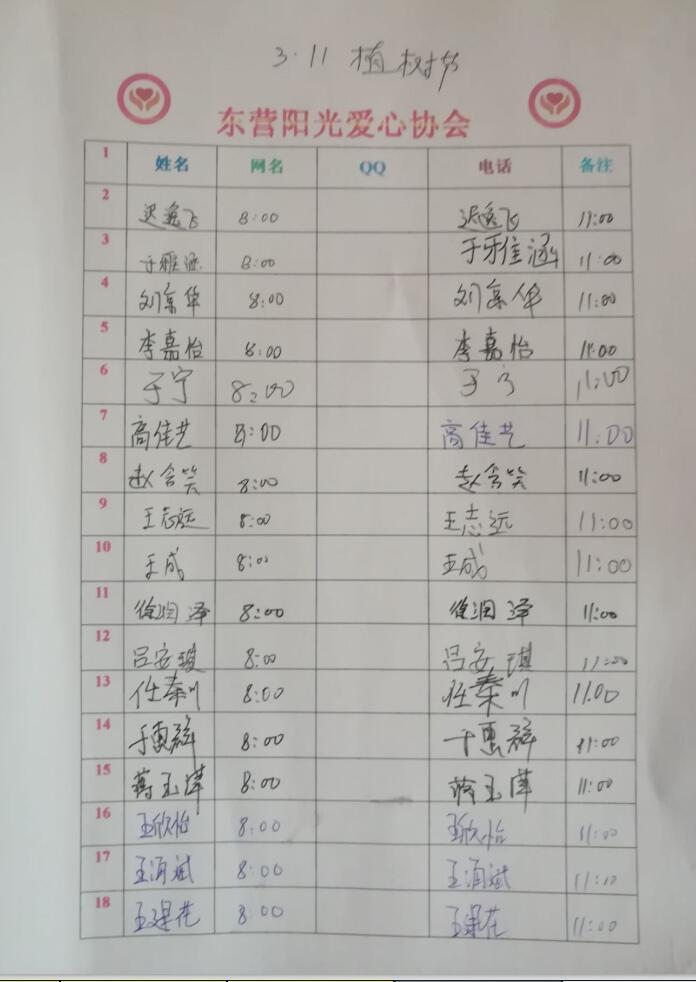 3·11 植树节
东营阳光爱心协会
1 姓名 网名 QQ 电话 备注
2 迟逸飞 8:00 迟逸飞 11:00
3 于雅涵 8:00 于雅涵 11:00
4 刘景华 8:00 刘景华 11:00
5 李嘉怡 8:00 李嘉怡 11:00
6 于宁 8:00 于宁 11:00
7 高佳艺 8:00 高佳艺 11:00
8 赵含笑 8:00 赵含笑 11:00
9 王志远 8:00 王志远 11:00
10 王成 8:00 王成 11:00
11 徐润泽 8:00 徐润泽 11:00
12 吕安琪 8:00 吕安琪 11:00
13 任秦川 8:00 任秦川 11:00
14 于惠群 8:00 于惠群 11:00
15 蒋玉萍 8:00 蒋玉萍 11:00
16 王欣怡 8:00 王欣怡 11:00
17 王海斌 8:00 王海斌 11:00
18 8:00 11:00